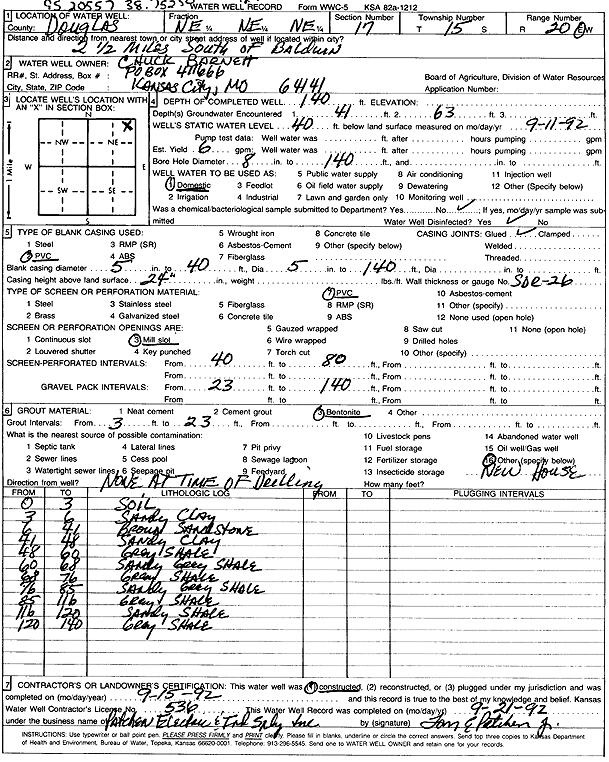 SS 20557 38.75233 WATER WELL RECORD Form WWC-5 KSA 82a-1212
1 LOCATION OF WATER WELL: Fraction Section Number Township Number Range Number
County: Douglas NE ¼ NE ¼ NE ¼ 17 T 15 S R 20 E/W
Distance and direction from nearest town or city street address of well if located within city?
2 1/2 Miles South of Baldwin
2 WATER WELL OWNER: Chuck Barnett
RR#, St. Address, Box # : PO Box 411666 Board of Agriculture, Division of Water Resources
City, State, ZIP Code : Kansas City, MO 64141 Application Number:
3 LOCATE WELL'S LOCATION WITH AN "X" IN SECTION BOX:
N
X
NW NE
W E
SW SE
S
1 Mile
4 DEPTH OF COMPLETED WELL 140 ft. ELEVATION:
Depth(s) Groundwater Encountered 1 41 ft. 2 63 ft. 3 ft.
WELL'S STATIC WATER LEVEL 40 ft. below land surface measured on mo/day/yr 9-11-92
Pump test data: Well water was ft. after hours pumping gpm
Est. Yield 6 gpm: Well water was ft. after hours pumping gpm
Bore Hole Diameter 8 in. to 140 ft., and in. to ft.
WELL WATER TO BE USED AS: 5 Public water supply 8 Air conditioning 11 Injection well
1 Domestic 3 Feedlot 6 Oil field water supply 9 Dewatering 12 Other (Specify below)
2 Irrigation 4 Industrial 7 Lawn and garden only 10 Monitoring well
Was a chemical/bacteriological sample submitted to Department? Yes No ✓; If yes, mo/day/yr sample was submitted Water Well Disinfected? Yes ✓ No
5 TYPE OF BLANK CASING USED: 5 Wrought iron 8 Concrete tile CASING JOINTS: Glued ✓ Clamped
1 Steel 3 RMP (SR) 6 Asbestos-Cement 9 Other (specify below) Welded
2 PVC 4 ABS 7 Fiberglass Threaded
Blank casing diameter 5 in. to 40 ft., Dia 5 in. to 140 ft., Dia in. to ft.
Casing height above land surface 24" in., weight lbs./ft. Wall thickness or gauge No. SDR-26
TYPE OF SCREEN OR PERFORATION MATERIAL: 7 PVC 10 Asbestos-cement
1 Steel 3 Stainless steel 5 Fiberglass 8 RMP (SR) 11 Other (specify)
2 Brass 4 Galvanized steel 6 Concrete tile 9 ABS 12 None used (open hole)
SCREEN OR PERFORATION OPENINGS ARE: 5 Gauzed wrapped 8 Saw cut 11 None (open hole)
1 Continuous slot 3 Mill slot 6 Wire wrapped 9 Drilled holes
2 Louvered shutter 4 Key punched 7 Torch cut 10 Other (specify)
SCREEN-PERFORATED INTERVALS: From 40 ft. to 80 ft., From ft. to ft.
From ft. to ft., From ft. to ft.
GRAVEL PACK INTERVALS: From 23 ft. to 140 ft., From ft. to ft.
From ft. to ft., From ft. to ft.
6 GROUT MATERIAL: 1 Neat cement 2 Cement grout 3 Bentonite 4 Other
Grout Intervals: From 3 ft. to 23 ft., From ft. to ft., From ft. to ft.
What is the nearest source of possible contamination: 10 Livestock pens 14 Abandoned water well
1 Septic tank 4 Lateral lines 7 Pit privy 11 Fuel storage 15 Oil well/Gas well
2 Sewer lines 5 Cess pool 8 Sewage lagoon 12 Fertilizer storage 16 Other (specify below)
3 Watertight sewer lines 6 Seepage pit 9 Feedyard 13 Insecticide storage New House
Direction from well? None At Time Of Drilling How many feet?
FROM TO LITHOLOGIC LOG FROM TO PLUGGING INTERVALS
0 3 Soil
3 6 Sandy Clay
6 41 Brown Sandstone
41 48 Sandy Clay
48 60 Gray Shale
60 68 Sandy Grey Shale
68 76 Gray Shale
76 85 Sandy Grey Shale
85 116 Gray Shale
116 120 Sandy Shale
120 140 Gray Shale
7 CONTRACTOR'S OR LANDOWNER'S CERTIFICATION: This water well was (1) constructed, (2) reconstructed, or (3) plugged under my jurisdiction and was
completed on (mo/day/year) 9-15-92 and this record is true to the best of my knowledge and belief. Kansas
Water Well Contractor's License No. 536 This Water Well Record was completed on (mo/day/yr) 9-21-92
under the business name of Patchen Electric & Ind Sply Inc by (signature) Jon E Patchen Jr.
INSTRUCTIONS: Use typewriter or ball point pen. PLEASE PRESS FIRMLY and PRINT clearly. Please fill in blanks, underline or circle the correct answers. Send top three copies to Kansas Department
of Health and Environment, Bureau of Water, Topeka, Kansas 66620-0001. Telephone: 913-296-5545. Send one to WATER WELL OWNER and retain one for your records.